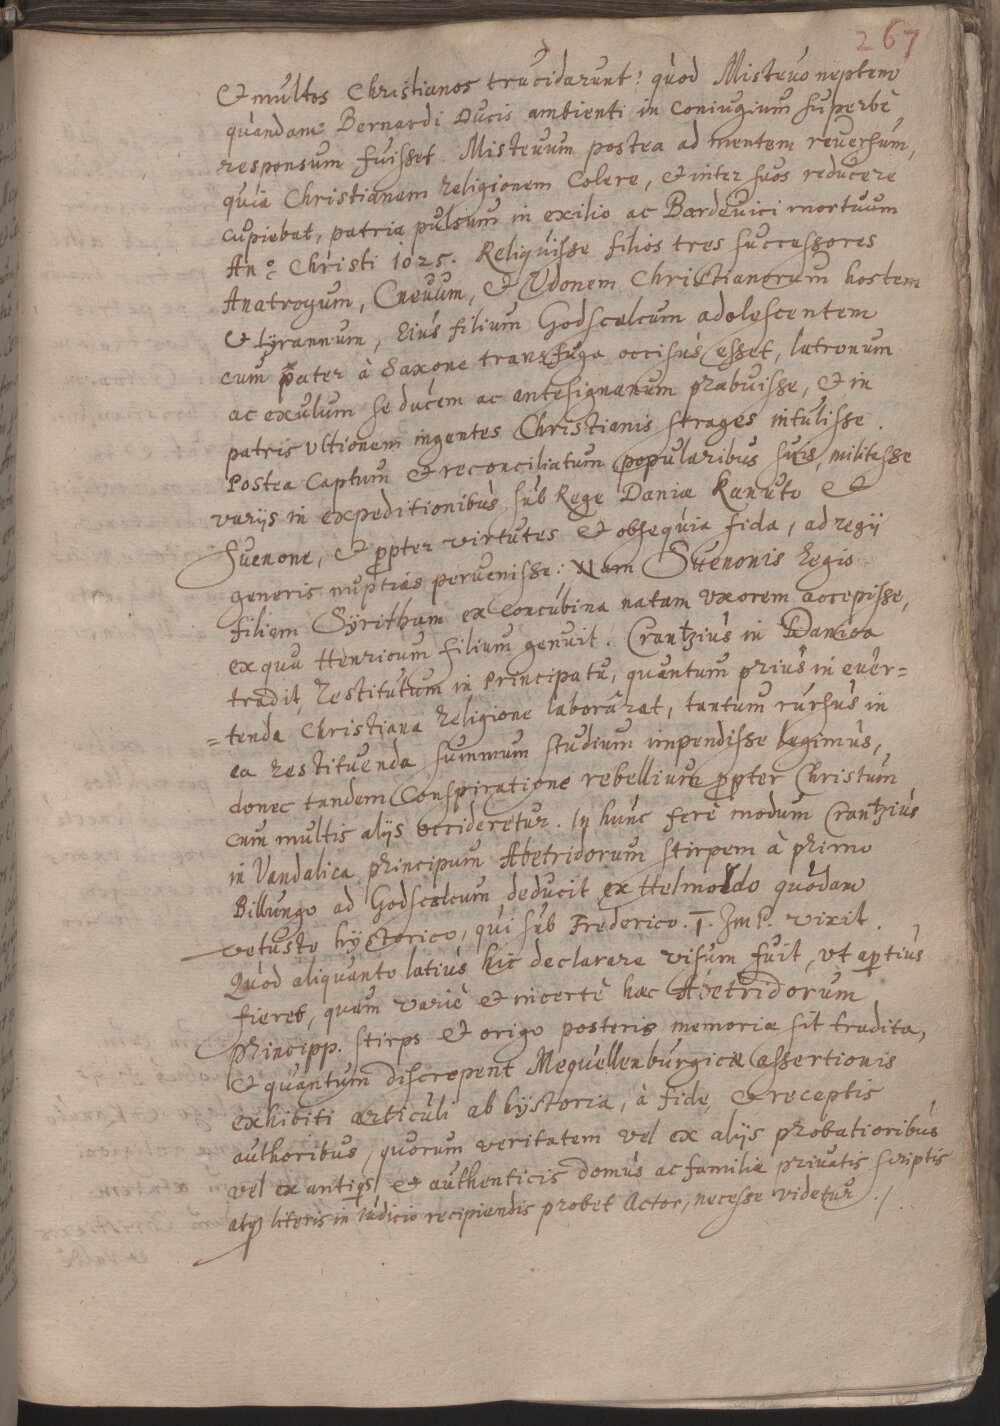 267
Et multos Christianos trucidarunt: quod Misteuo neptem
quandam Bernardi Ducis ambienti in coniugium superbè
responsum fuisset. Misteuum postea ad mentem reuersum,
quia Christianam religionem Colere, et inter suos reducere
cupiebat, patria pulsum in exilio ac Bardeuici mortuum
Anº Christi 1025. Reliquisse filios tres successores
Anatrogum, Cneuum, et Udonem Christianorum hostem
et tyrannum, Eius filium Godscalcum adolescentem
cum pater à Saxone transfuga occisus esset, latronum
ac exulum se ducem ac antesignanum præbuisse, et in
patris ultionem ingentes Christianis strages intulisse.
Postea Captum et reconciliatum popularibus suis, militasse
varijs in expeditionibus sub Rege Daniæ Kanuto et
Suenone, et ꝓpter virtutes et obsequia fida, ad regij
generis nuptias peruenisse: Nam Suenonis Regis
filiam Syritham ex concubina natam uxorem accepisse,
ex qua Henricum filium genuit. Crantzius in Danica
tradit, Restitutum in Principatu, quantum prius in euer=
=tenda Christiana Religione laborârat, tantum rursus in
ea restituenda summum studium impendisse legimus,
donec tandem Conspiratione rebellium ꝓpter Christum
cum multis alijs occideretur. In hunc ferè modum Crantzius
in Vandalica Principum Abetridorum stirpem à primo
Billungo ad Godscalcum deducit ex Helmoldo quodam
vetusto hystorico, qui sub Frederico. I. Imp. vixit.
Quod aliquanto latius hic declarare visum fuit, ut apertius
fieret, quam variè et incertè hæc Abetridorum
Principp. stirps et origo posteris memoriæ sit tradita,
et quantum discrepent Mequellenburgicæ assertionis
exhibiti articuli ab hystoria, à fide, et receptis
authoribus, quorum veritatem vel ex alijs probatioribus
vel ex antiquis et authenticis domus ac familiæ priuatis scriptis
atq́ literis in iudicio recipiendis probet Actor, necesse videtur.